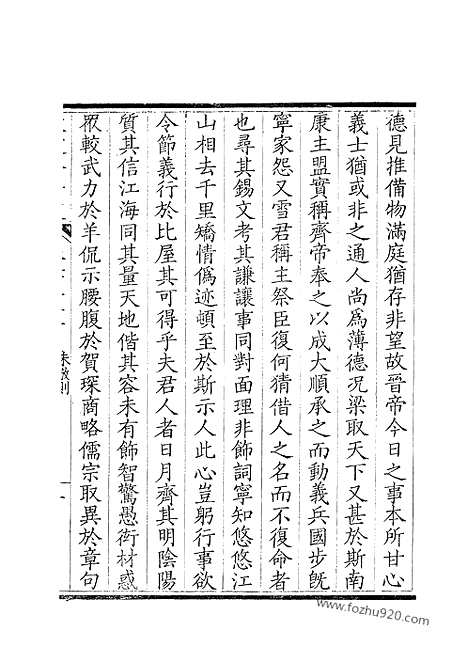 德見推備物滿庭猶存非望故晉帝今日之事本所甘心
義士猶或非之通人尚為薄德況梁取天下又甚於斯南
康主盟實稱齊帝奉之以成大順承之而動義兵國步旣
寧家怨又雪君稱主祭臣復何猜借人之名而不復命者
也尋其錫文考其謙讓事同對面理非飾詞寧知悠悠江
山相去千里矯情偽迹頓至於斯示人此心豈躬行事欲
令節義行於比屋其可得乎夫君人者日月齊其明陰陽
質其信江海同其量天地偕其容未有飾智驚愚衒材惑
眾較武力於羊侃示腰腹於賀琛商略儒宗取異於章句
朱敬則
www.fozhu920.com